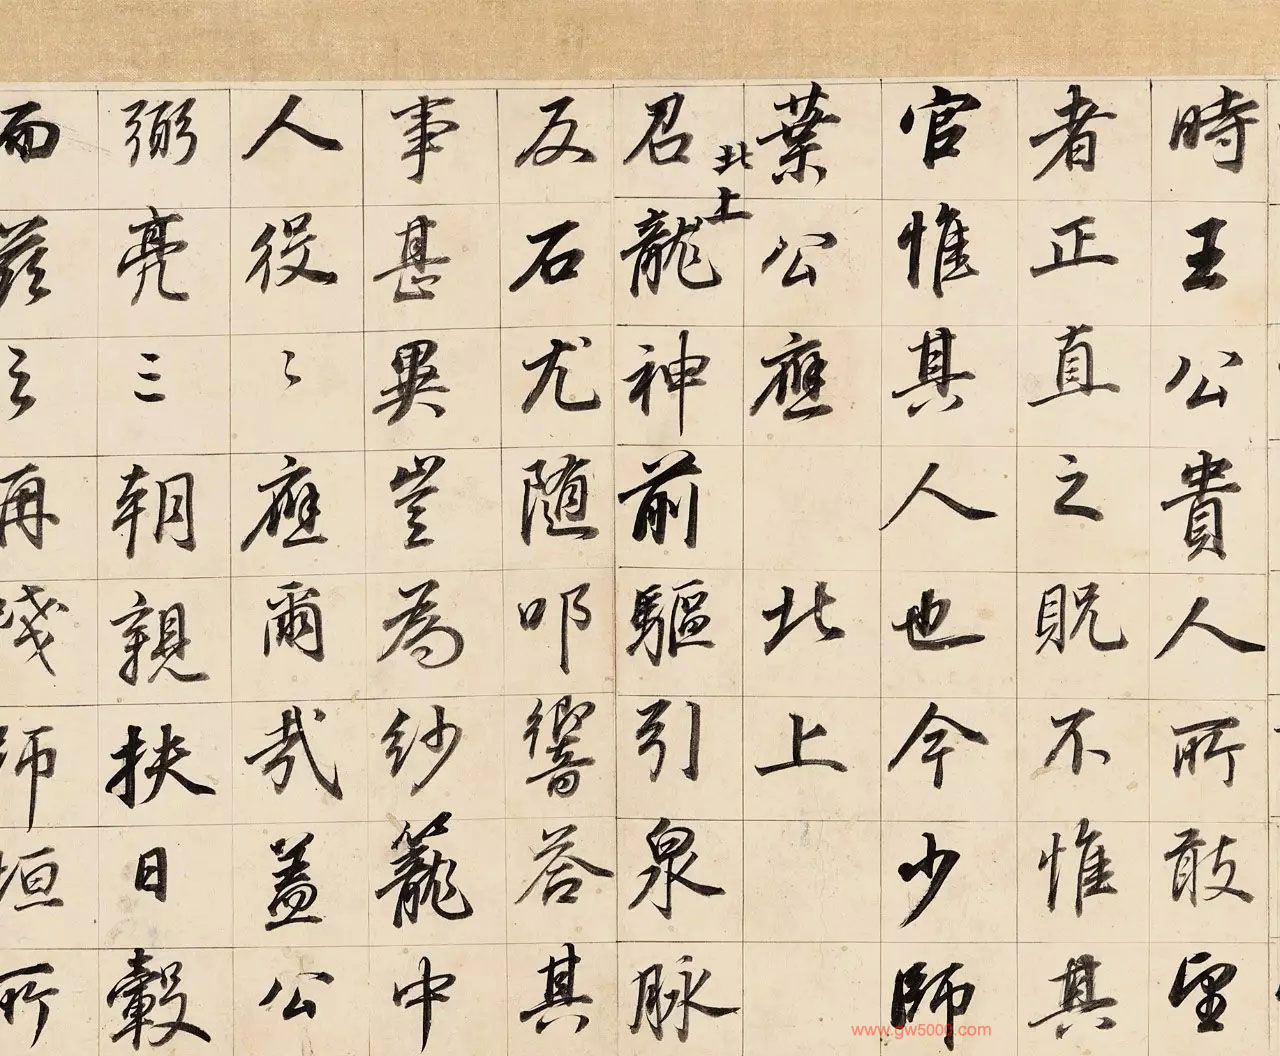 時王公貴人所敢望
者正直之貺不惟其
官惟其人也今少師
葉公應北上
北上
召龍神前驅引泉脉
反石尤随叩響答其
事甚異豈為紗籠中
人役〻應爾哉蓋公
弼亮三朝親扶日轂
而茲之再淺師垣所
www.gw5000.com